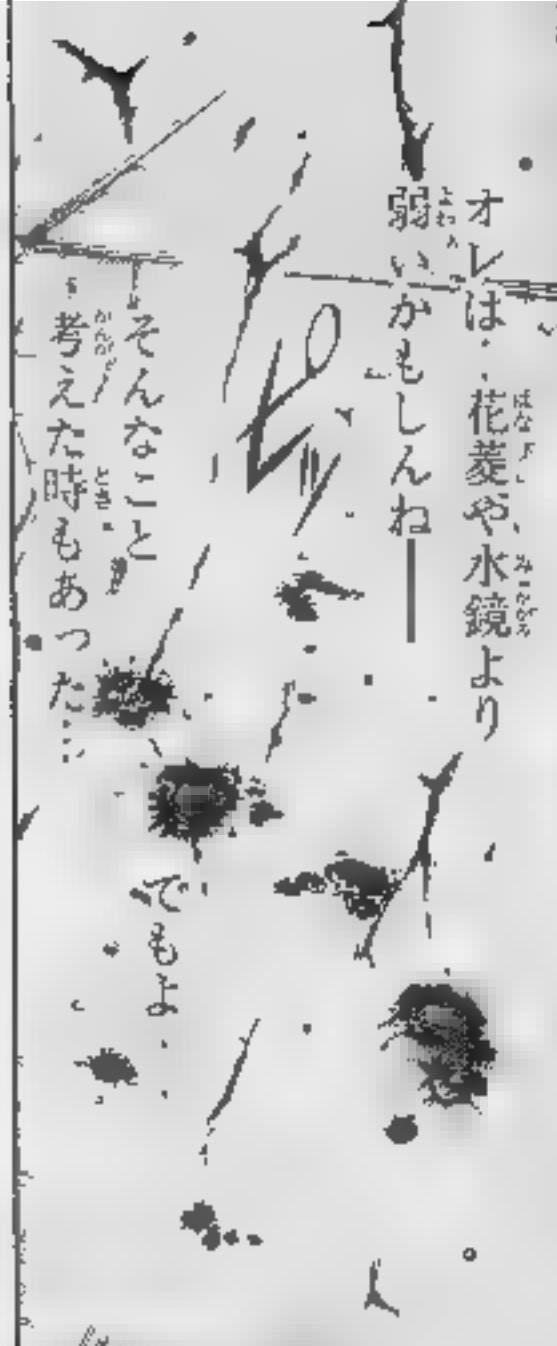 オレは…花菱や水鏡より
弱いかもしんね―
そんなこと
考えた時もあった…
でもよ…